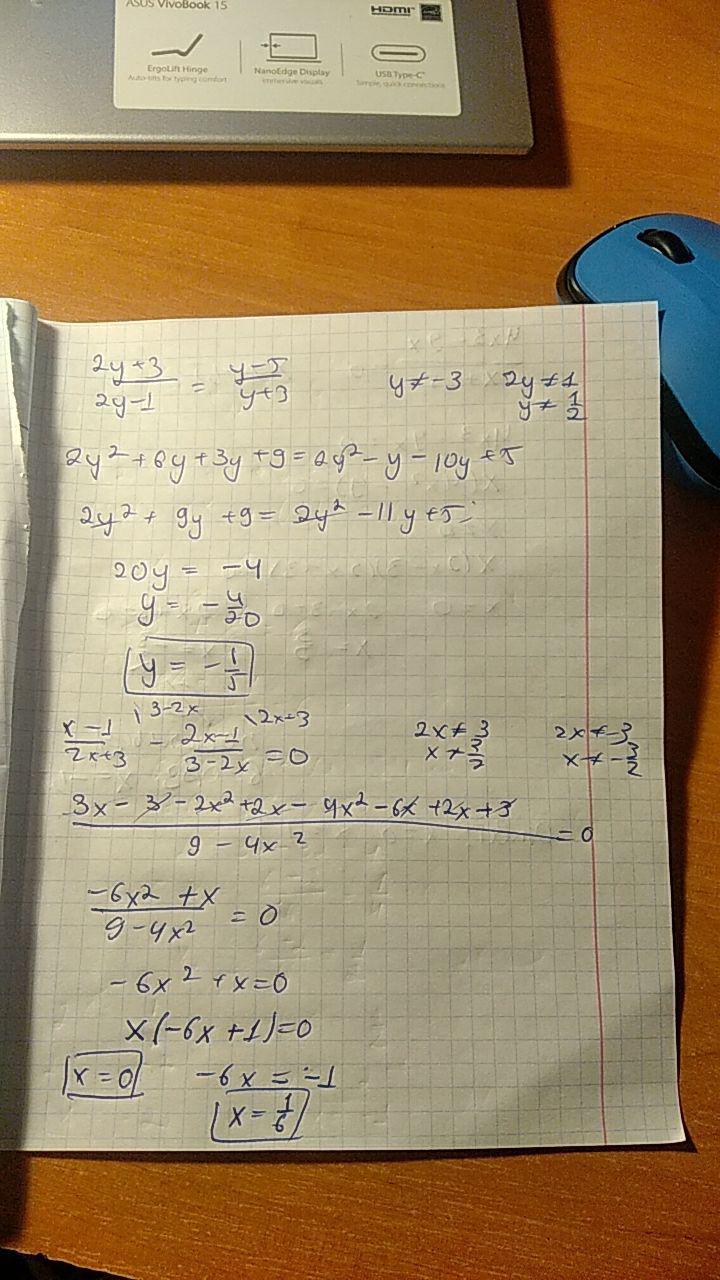 ASUS VivoBook 15
HDMI
ErgoLift Hinge
Auto-tilts for typing comfort
NanoEdge Display
Immersive visuals
USB Type-C®
Simple, quick connections
(2y+3)/(2y-1) = (y-5)/(y+3)    y≠-3    2y≠1
y≠1/2
2y²+6y+3y+9=2y²-y-10y+5
2y²+9y+9=2y²-11y+5
20y=-4
y=-4/20
y=-1/5
\3-2x    \2x+3
(x-1)/(2x+3) - (2x-1)/(3-2x) =0    2x≠3    2x≠-3
x≠3/2    x≠-3/2
(3x-3-2x²+2x-4x²-6x+2x+3)/(9-4x²) =0
(-6x²+x)/(9-4x²) =0
-6x²+x=0
x(-6x+1)=0
x=0    -6x=-1
x=1/6